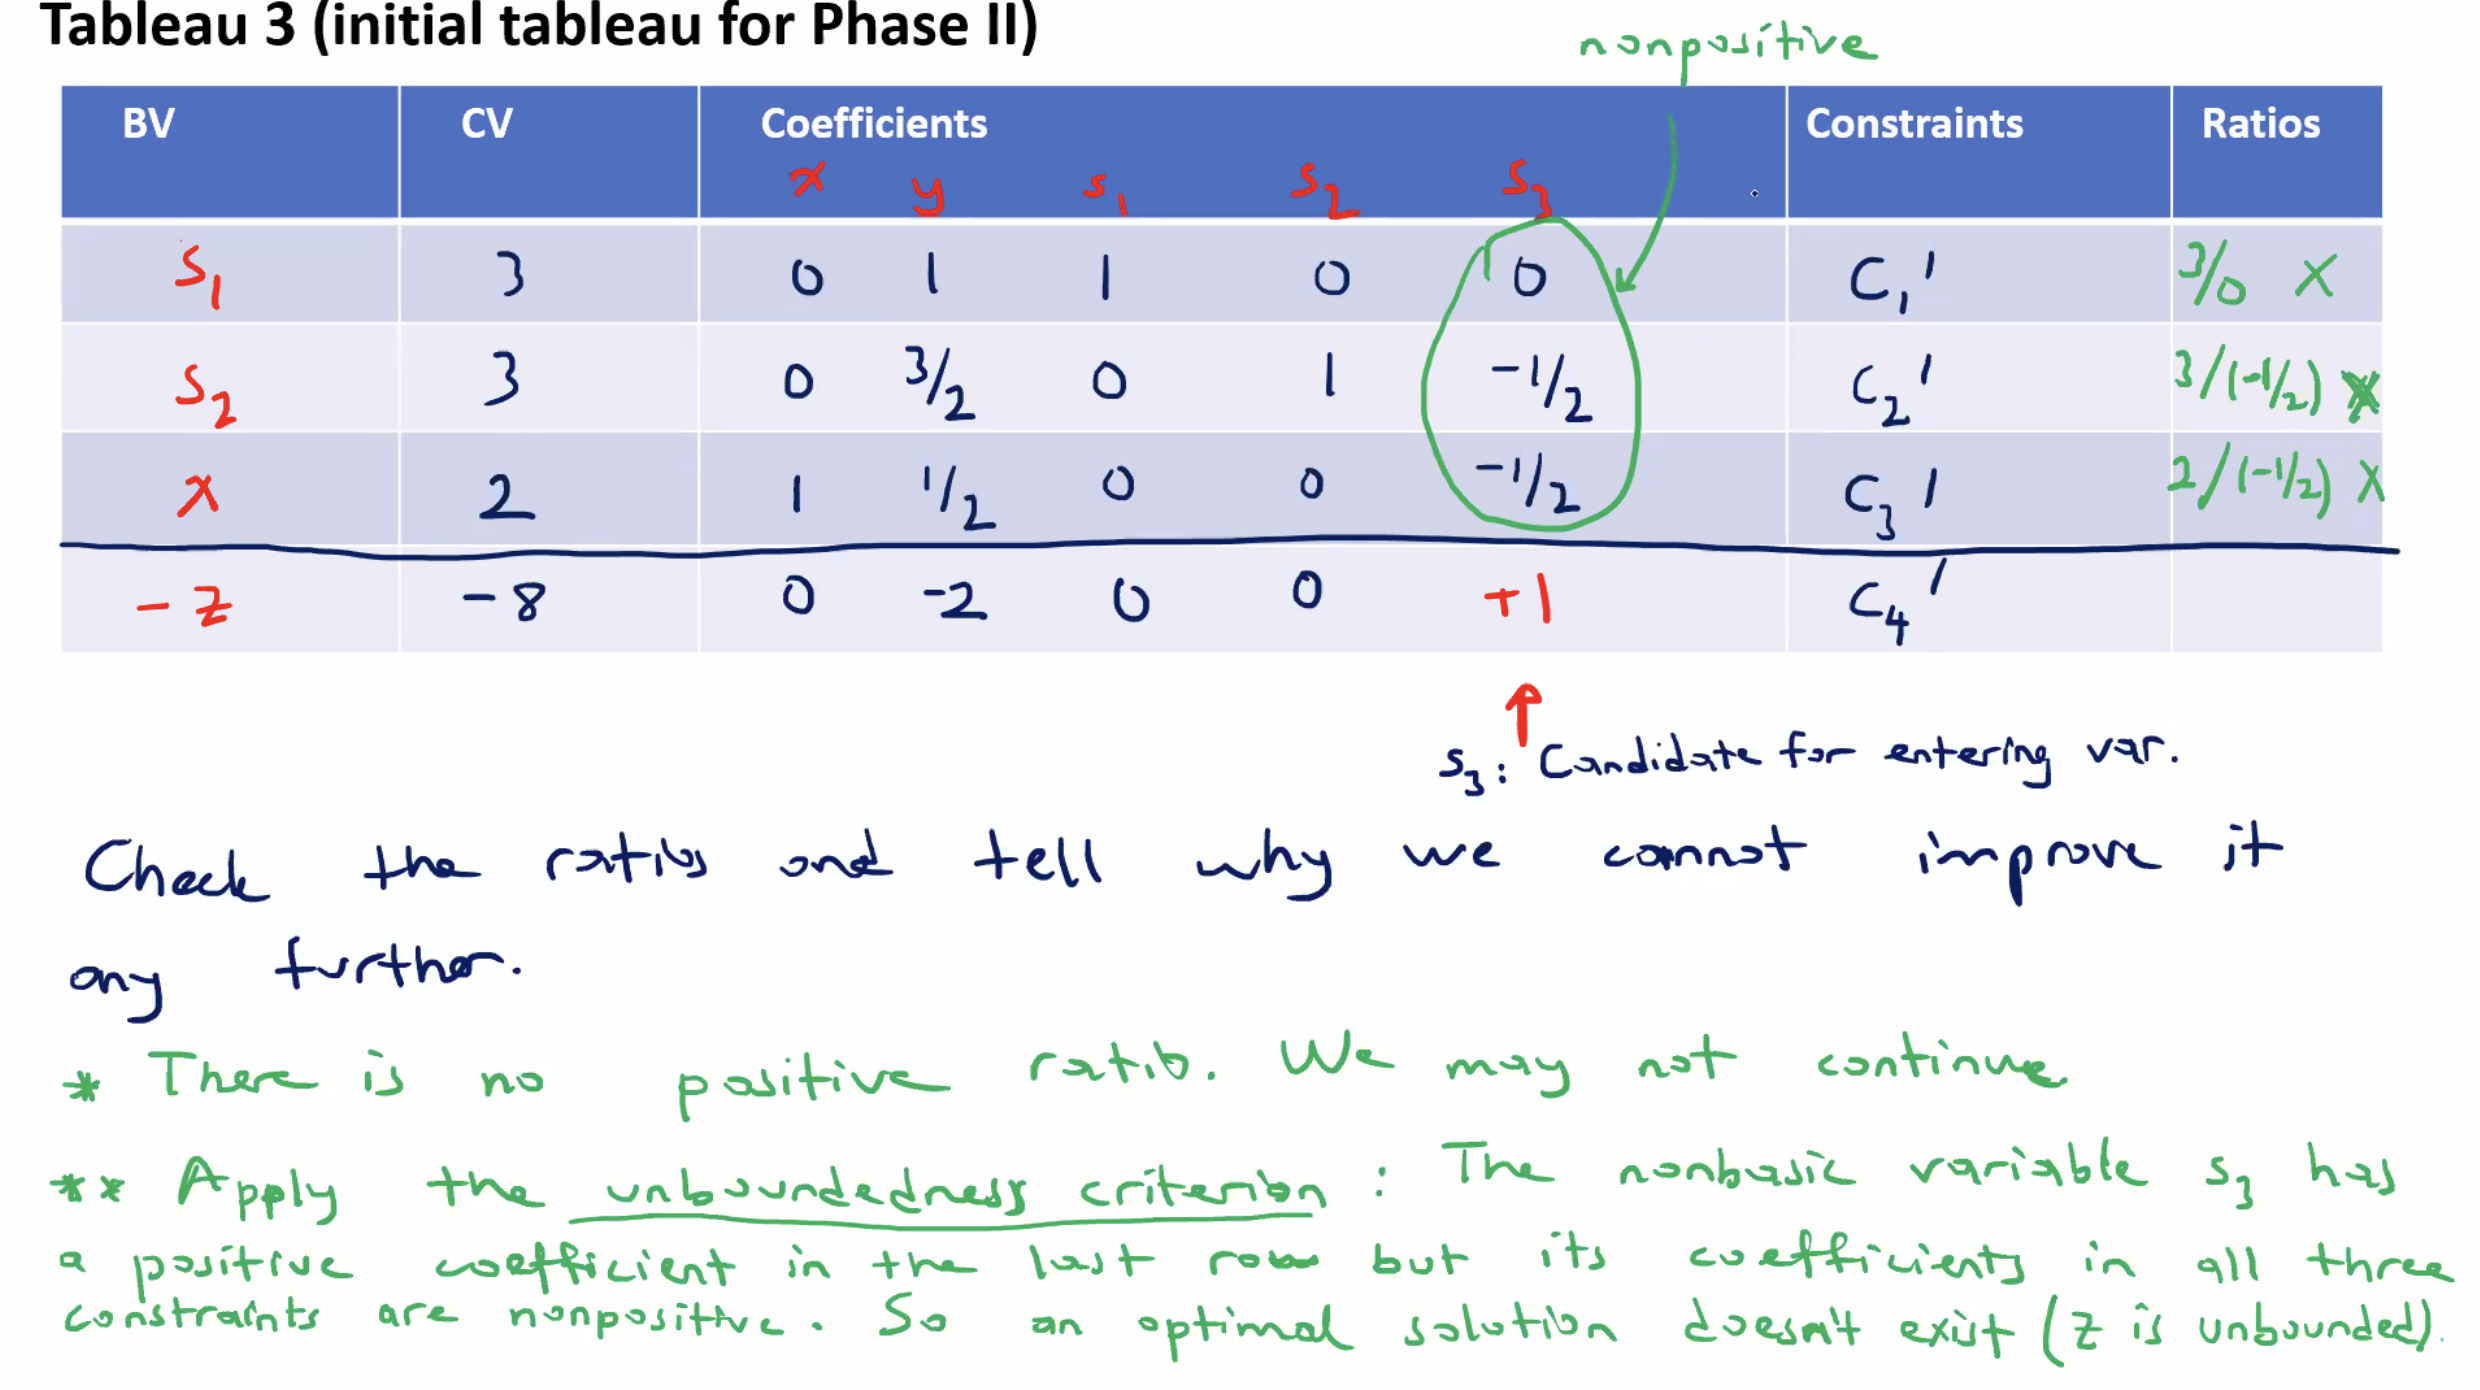 Tableau 3 (initial tableau for Phase II)
nonpositive
BV CV Coefficients Constraints Ratios
x y s₁ s₂ s₃
s₁ 3 0 1 1 0 0 C₁' 3/0 X
s₂ 3 0 3/2 0 1 -1/2 C₂' 3/(-1/2) X
x 2 1 1/2 0 0 -1/2 C₃' 2/(-1/2) X
-z -8 0 -2 0 0 +1 C₄'
s₃: Candidate for entering var.
Check the ratios and tell why we cannot improve it
any further.
* There is no positive ratio. We may not continue.
** Apply the unboundedness criterion: The nonbasic variable s₃ has
a positive coefficient in the last row but its coefficients in all three
constraints are nonpositive. So an optimal solution doesn't exist (z is unbounded).